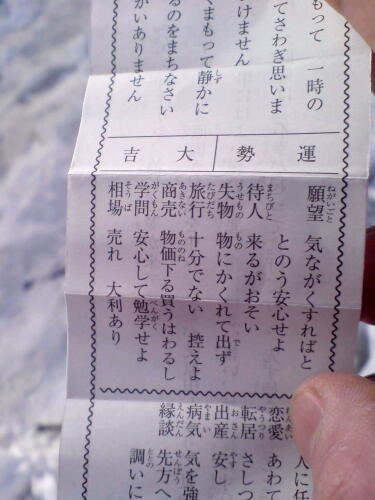 もって 一時の
てさわぎ思いま
けません
まもって静かに
るのをまちなさい
がいありません
運勢 大吉
願望 気ながくすればと
とのう安心せよ
待人 来るがおそい
失物 物にかくれて出ず
旅行 十分でない 控えよ
商売 物価下る買うはわるし
学問 安心して勉学せよ
相場 売れ 大利あり
人に任
恋愛 あわて
転居 さしつ
出産 安し
病気 気を強
縁談 先方へ
調いに